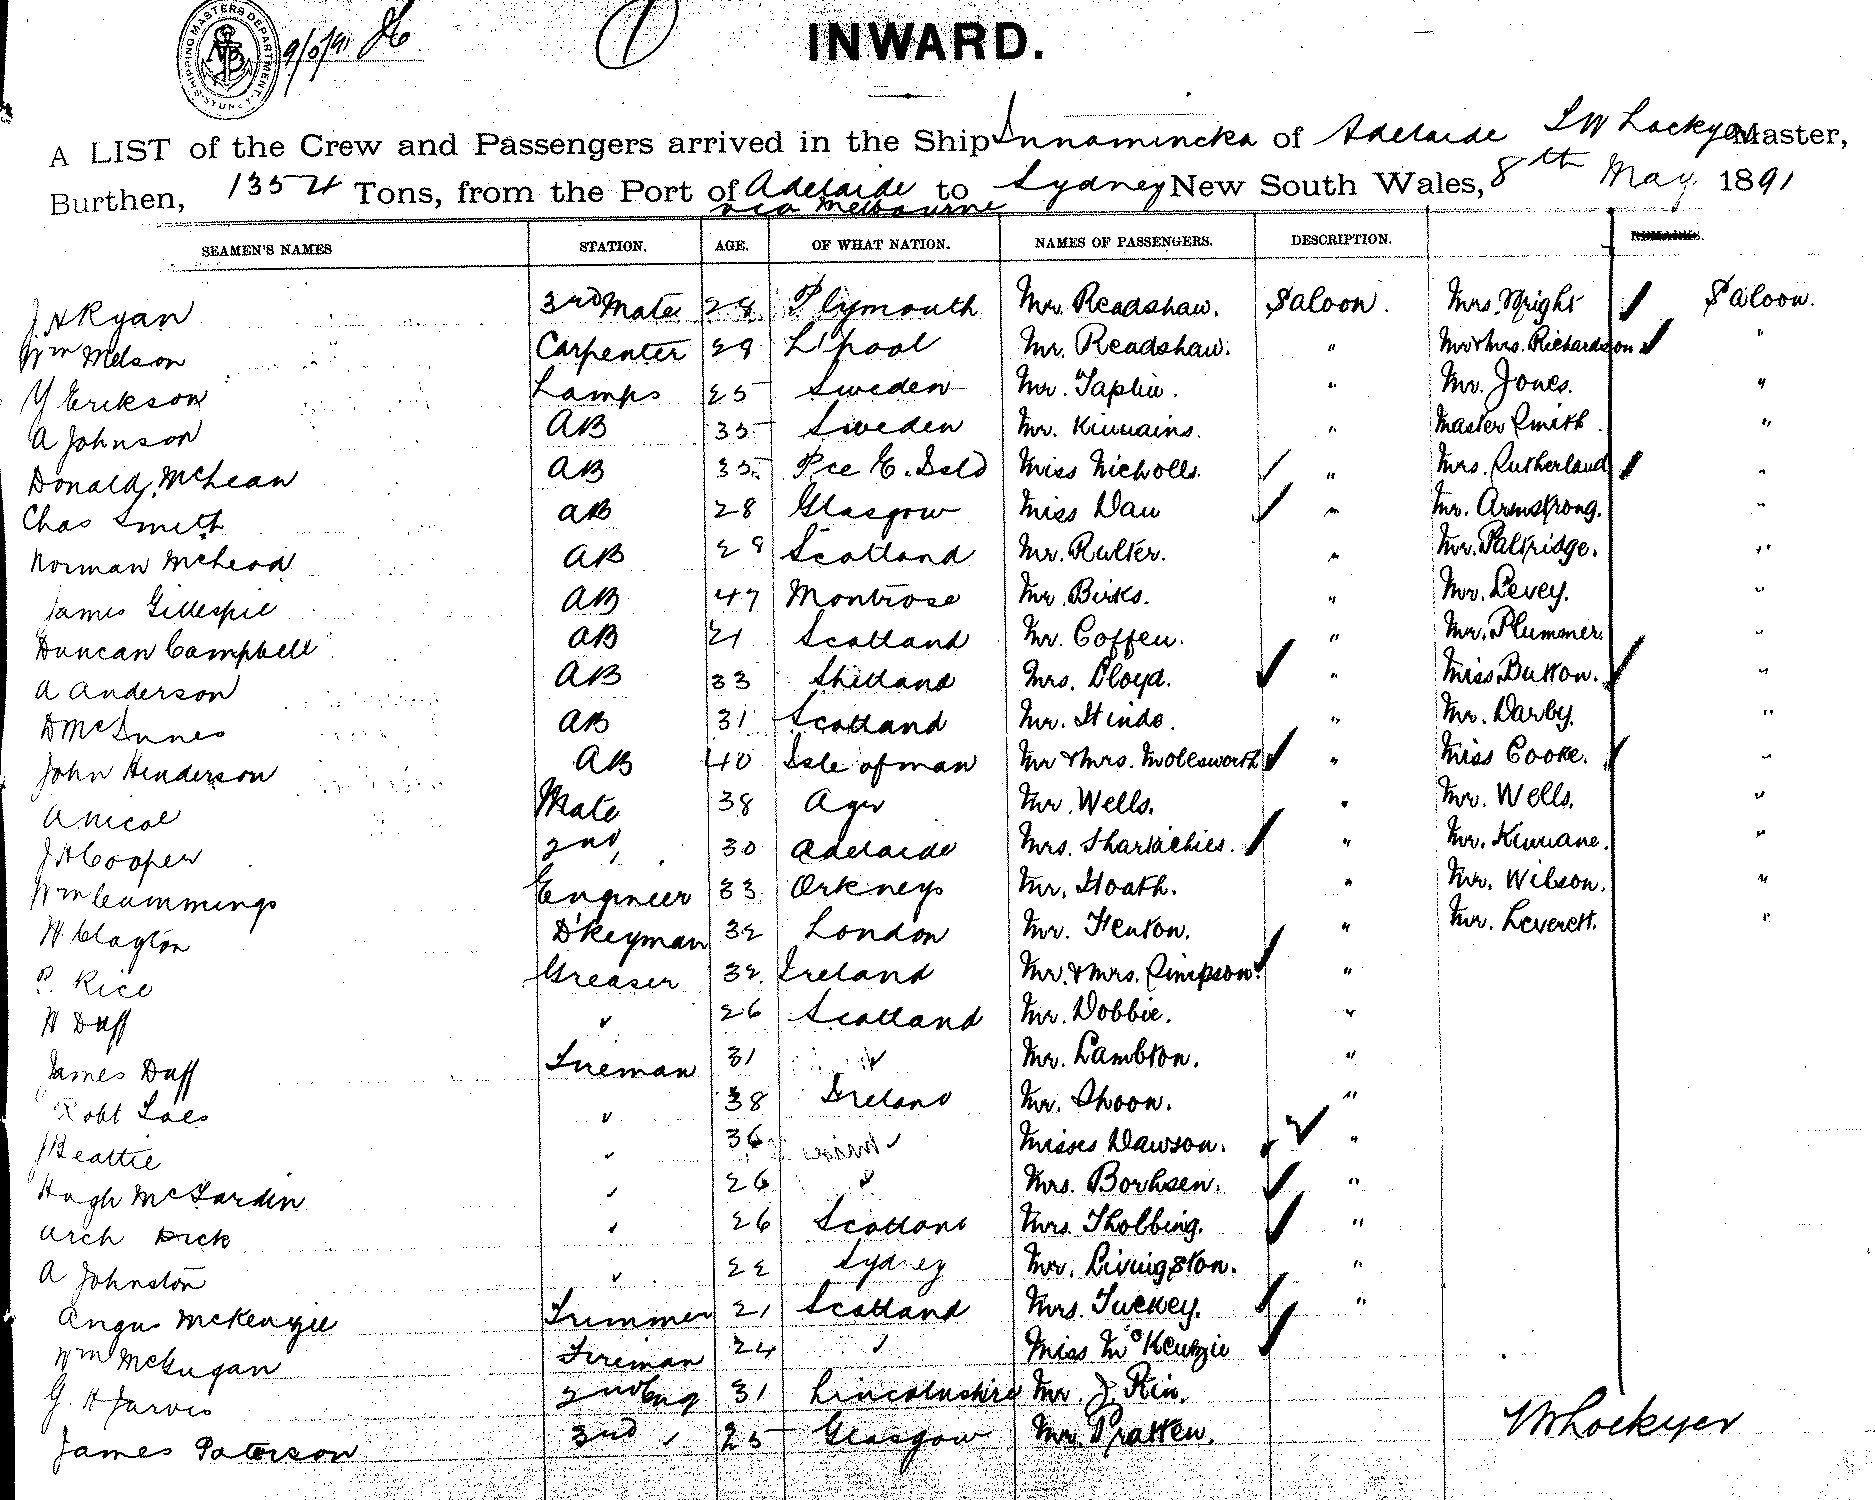 SHIPPING MASTERS DEPARTMENT SYDNEY
9/5/91
1
INWARD.
A LIST of the Crew and Passengers arrived in the Ship Innamincka of Adelaide S W Lockyer Master,
Burthen, 1354 Tons, from the Port of Adelaide to Sydney New South Wales, 8th May 1891
via Melbourne
SEAMEN'S NAMES STATION. AGE. OF WHAT NATION. NAMES OF PASSENGERS. DESCRIPTION. REMARKS.
J H Ryan 3rd Mate 28 Plymouth Mr. Readshaw. Saloon. Mrs. Wright Saloon.
Wm Melson Carpenter 29 L'pool Mr. Readshaw. " Mr & Mrs. Richardson "
Y Erikson Lamps 25 Sweden Mr. Taplin. " Mr. Jones. "
A Johnson AB 35 Sweden Mr. " Master Smith "
Donald McLean AB 35 Pce E. Isld Miss Nicholls. " Mrs. Sutherland "
Chas Smith AB 28 Glasgow Miss Daw " Mr. Armstrong. "
Norman McLeod AB 29 Scotland Mr. Rutter. " Mr. Paltridge. "
James Gillespie AB 47 Montrose Mr. Birks. " Mr. Levey. "
Duncan Campbell AB 21 Scotland Mr. Coffen. " Mr. Plummer. "
A Anderson AB 33 Shetland Mrs. Lloyd. " Miss Button. "
D McInnes AB 31 Scotland Mr. Hinds. " Mr. Darby. "
John Henderson AB 40 Isle of man Mr & Mrs. Molesworth " Miss Cooke. "
A Nicol Mate 38 Ayr Mr. Wells. " Mr. Wells. "
J H Cooper 2nd " 30 Adelaide Mrs. " Mr. Kinnane. "
Wm Cummings Engineer 33 Orkneys Mr. Hoath. " Mr. Wilson. "
W Clayton D'keyman 32 London Mr. Henton. " Mr. Leverett. "
P. Rice Greaser 32 Ireland Mr. & Mrs. Simpson. "
W Duff " 26 Scotland Mr. Dobbie. "
James Duff Fireman 31 " Mr. Lambton. "
Robt " 38 Ireland Mr. Shoon. "
J Beattie " 36 " Misses Dawson. "
Hugh " 26 " Mrs. Borhsen. "
Arch Dick " 26 Scotland Mrs. Tholbing. "
A Johnston " 22 Sydney Mr. Livingston. "
Angus McKenzie Trimmer 21 Scotland Mrs. Tuckey. "
Wm McGugan Fireman 24 " Miss McKenzie
G H Jarvis 2nd Eng 31 Lincolnshire Mr. J. Rin.
James Paterson 3rd " 25 Glasgow Mr. Pratten.
S W Lockyer